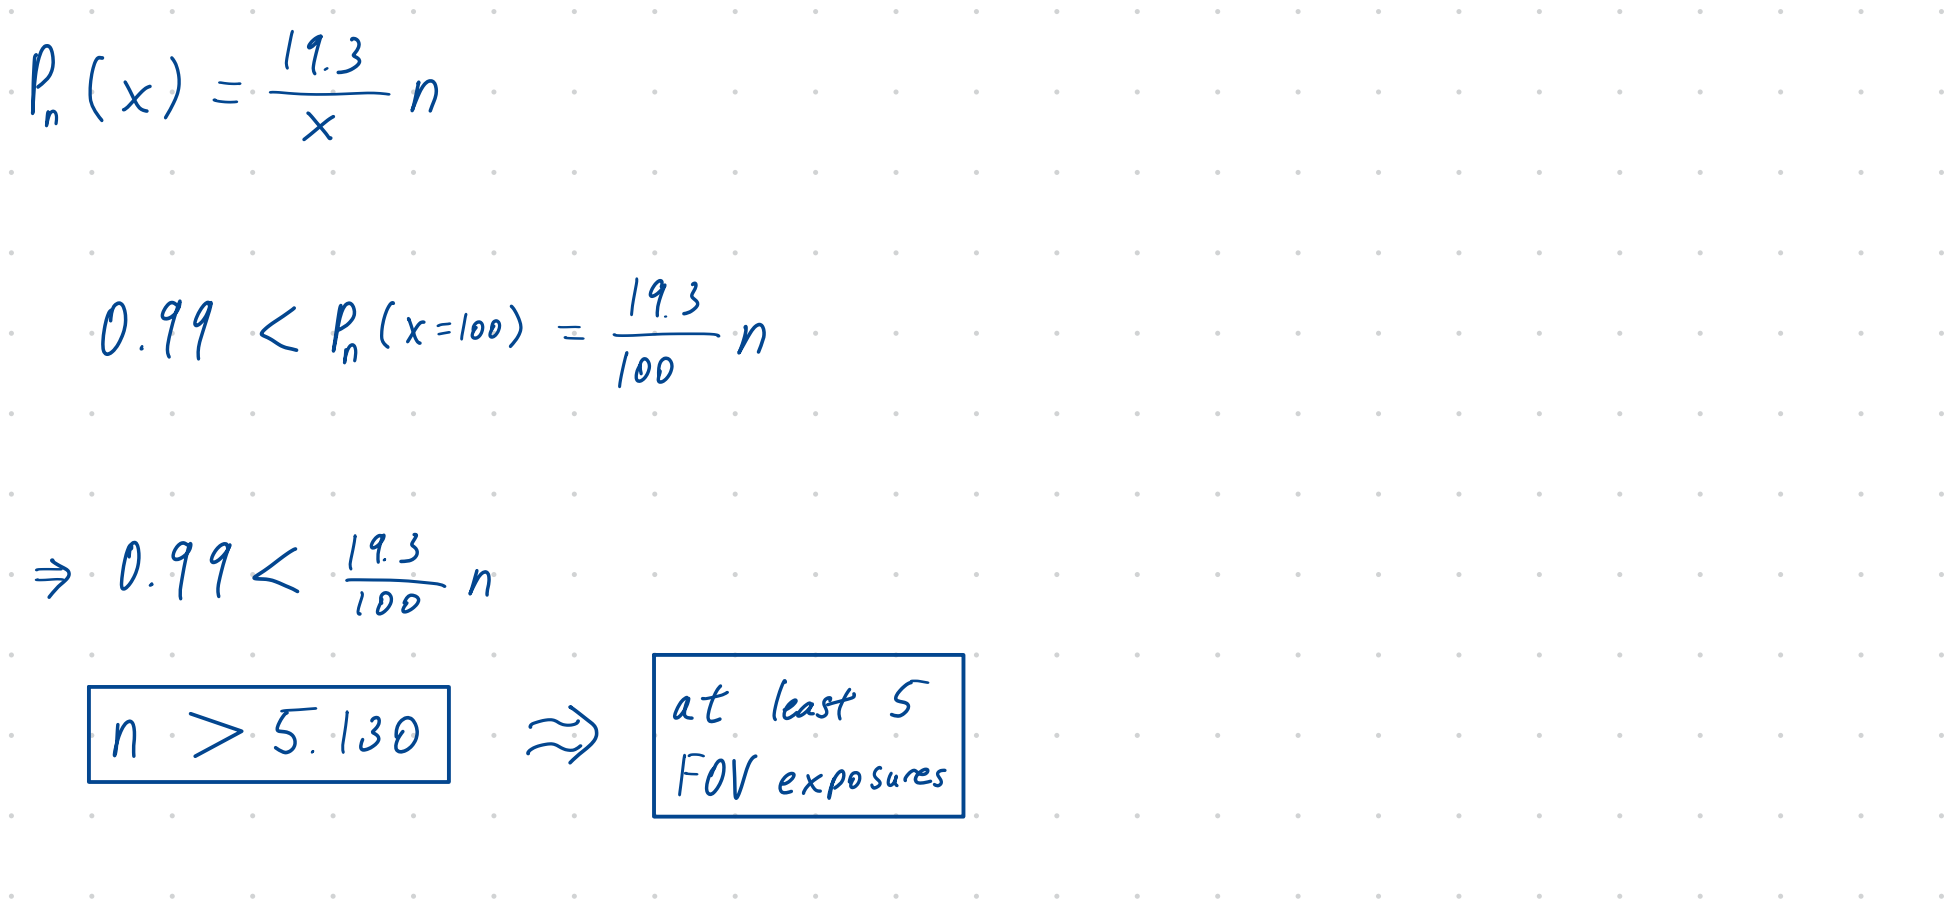 P_n (x) = 19.3/x n
0.99 < P_n (x=100) = 19.3/100 n
⇒ 0.99 < 19.3/100 n
n > 5.130 ⇒ at least 5
FOV exposures